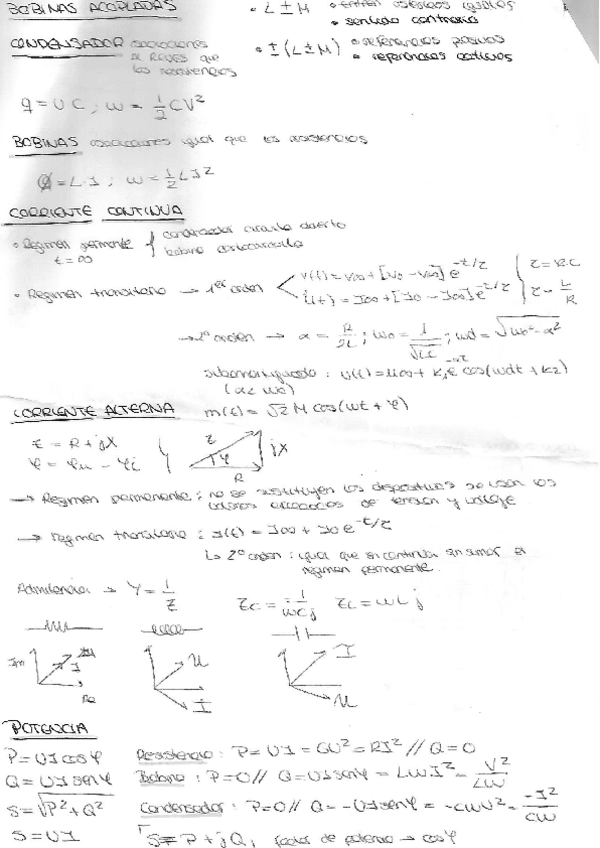 BOBINAS ACOPLADAS • L ± M • entran
• sentido contrario
CONDENSADOR asociaciones • ± (L ± M) • referencias pasivas
al revés que • referencias activas
las resistencias
q = UC ; W = 1/2 CV²
BOBINAS asociaciones igual que las resistencias
φ = L·I ; W = 1/2 L I²
CORRIENTE CONTINUA
• Régimen permanente { condensador circuito abierto
t = ∞ bobina cortocircuito
• Régimen transitorio → 1er orden < v(t) = V∞ + [V0 − V∞] e^(-t/τ) | τ = R·C
i(t) = I∞ + [I0 − I∞] e^(-t/τ) | τ = L/R
→ 2º orden → α = R/2L ; ω0 = 1/√LC ; ωd = √(ω0² − α²)
subamortiguado : u(t) = U∞ + K1 e^(-αt) cos(ωdt + K2)
(α < ω0)
CORRIENTE ALTERNA m(t) = √2 M cos(ωt + φ)
Z = R + jX
φ = φu − φi
Z φ jX
R
→ Régimen permanente : no se sustituyen los dispositivos se usan los
valores de tensión y
→ Régimen transitorio : I(t) = I∞ + I0 e^(-t/τ)
↳ 2º orden : igual que en continua sin sumar el
régimen permanente.
Admitancia → Y = 1/Z Zc = 1/ωCj ZL = ωLj
Im I U I
Re I U
POTENCIA
P = UI cos φ Resistencia : P = UI = GU² = RI² // Q = 0
Q = UI sen φ Bobina : P = 0 // Q = UI sen φ = LωI² = V²/Lω
S = √(P² + Q²) Condensador : P = 0 // Q = −UI sen φ = −CωU² = −I²/Cω
S = UI S = P + jQ, factor de potencia → cos φ